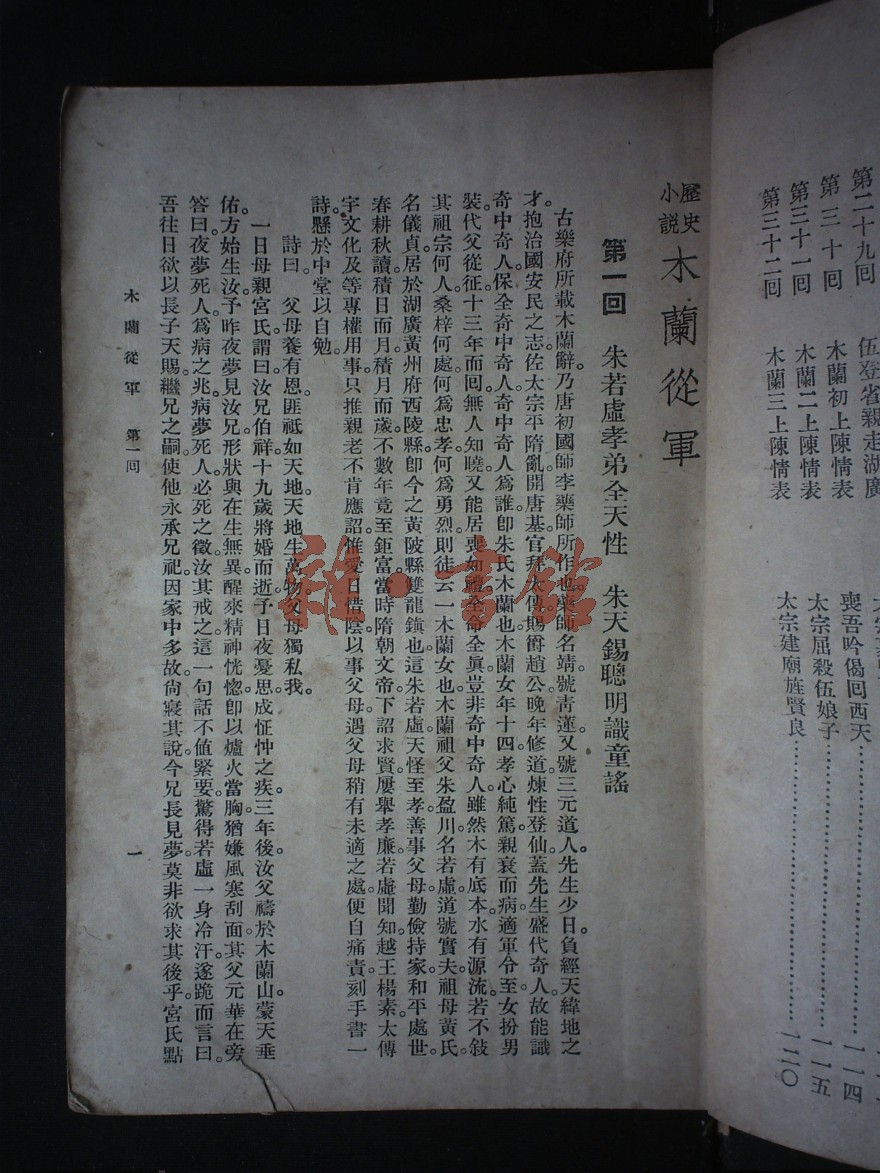 第二十九回　伍登省親走湖廣
喪吾吟偈回西天……………一一四
第三十回　木蘭初上陳情表
太宗屈殺伍娘子……………一一五
第三十一回　木蘭二上陳情表
太宗建廟旌賢良……………一二〇
第三十二回　木蘭三上陳情表
歷史小說　木蘭從軍
第一回　朱若虛孝弟全天性　朱天錫聰明識童謠
古樂府所載木蘭辭。乃唐初國師李藥師所作也。藥師名靖。號青蓮。又號三元道人。先生少日。負經天緯地之
才。抱治國安民之志。佐太宗平隋亂。開唐基。官拜太傅。賜爵趙公。晚年修道煉性登仙。蓋先生盛代奇人。故能識
奇中奇人。保全奇中奇人。奇中奇人爲誰。卽朱氏木蘭也。木蘭女年十四。孝心純篤。親衰而病。適軍令至。女扮男
裝。代父從征。十三年而回。無人知曉。又能居喪如禮。全命全眞。豈非奇中奇人。雖然木有底本。水有源流。若不敍
其祖宗何人。桑梓何處。何爲忠孝。何爲勇烈。則徒云一木蘭女也。木蘭祖父朱盈川。名若虛。道號實夫。祖母黃氏。
名儀貞。居於湖廣黃州府西陵縣。卽今之黃陂縣雙龍鎭也。這朱若虛天性至孝。善事父母。勤儉持家。和平處世。
春耕秋讀。積日而月。積月而歲。不數年竟至鉅富。當時隋朝文帝。下詔求賢。屢舉孝廉。若虛聞知越王楊素。太傅
宇文化及等專權用事。只推親老不肯應詔。惟愛日惜陰。以事父母。遇父母稍有未適之處。便自痛責。刻手書一
詩。懸於中堂以自勉。
詩曰。　父母養有恩。匪祗如天地。天地生萬物。父母獨私我。
一日母親宮氏。謂曰。汝兄伯祥。十九歲將婚而逝。予日夜憂思。成怔忡之疾。三年後汝父禱於木蘭山。蒙天垂
佑。方始生汝。予昨夜夢見汝兄。形狀與在生無異。醒來精神恍惚。卽以爐火當胸。猶嫌風塞刮面。其父元華在旁
答曰。夜夢死人。爲病之兆。病夢死人。必死之徵。汝其戒之。這一句話不値緊要。驚得若虛一身冷汗。遂跪而言曰。
吾往日欲以長子天賜。繼兄之嗣。使他永承兄祀。因家中多故。尙寢其說。今兄長見夢。莫非欲求其後乎。宮氏點
木蘭從軍　第一回
一
雜·書館